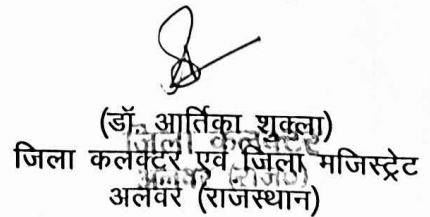 (डॉ. आर्तिका शुक्ला)
जिला कलेक्टर एवं जिला मजिस्ट्रेट
अलवर (राजस्थान)